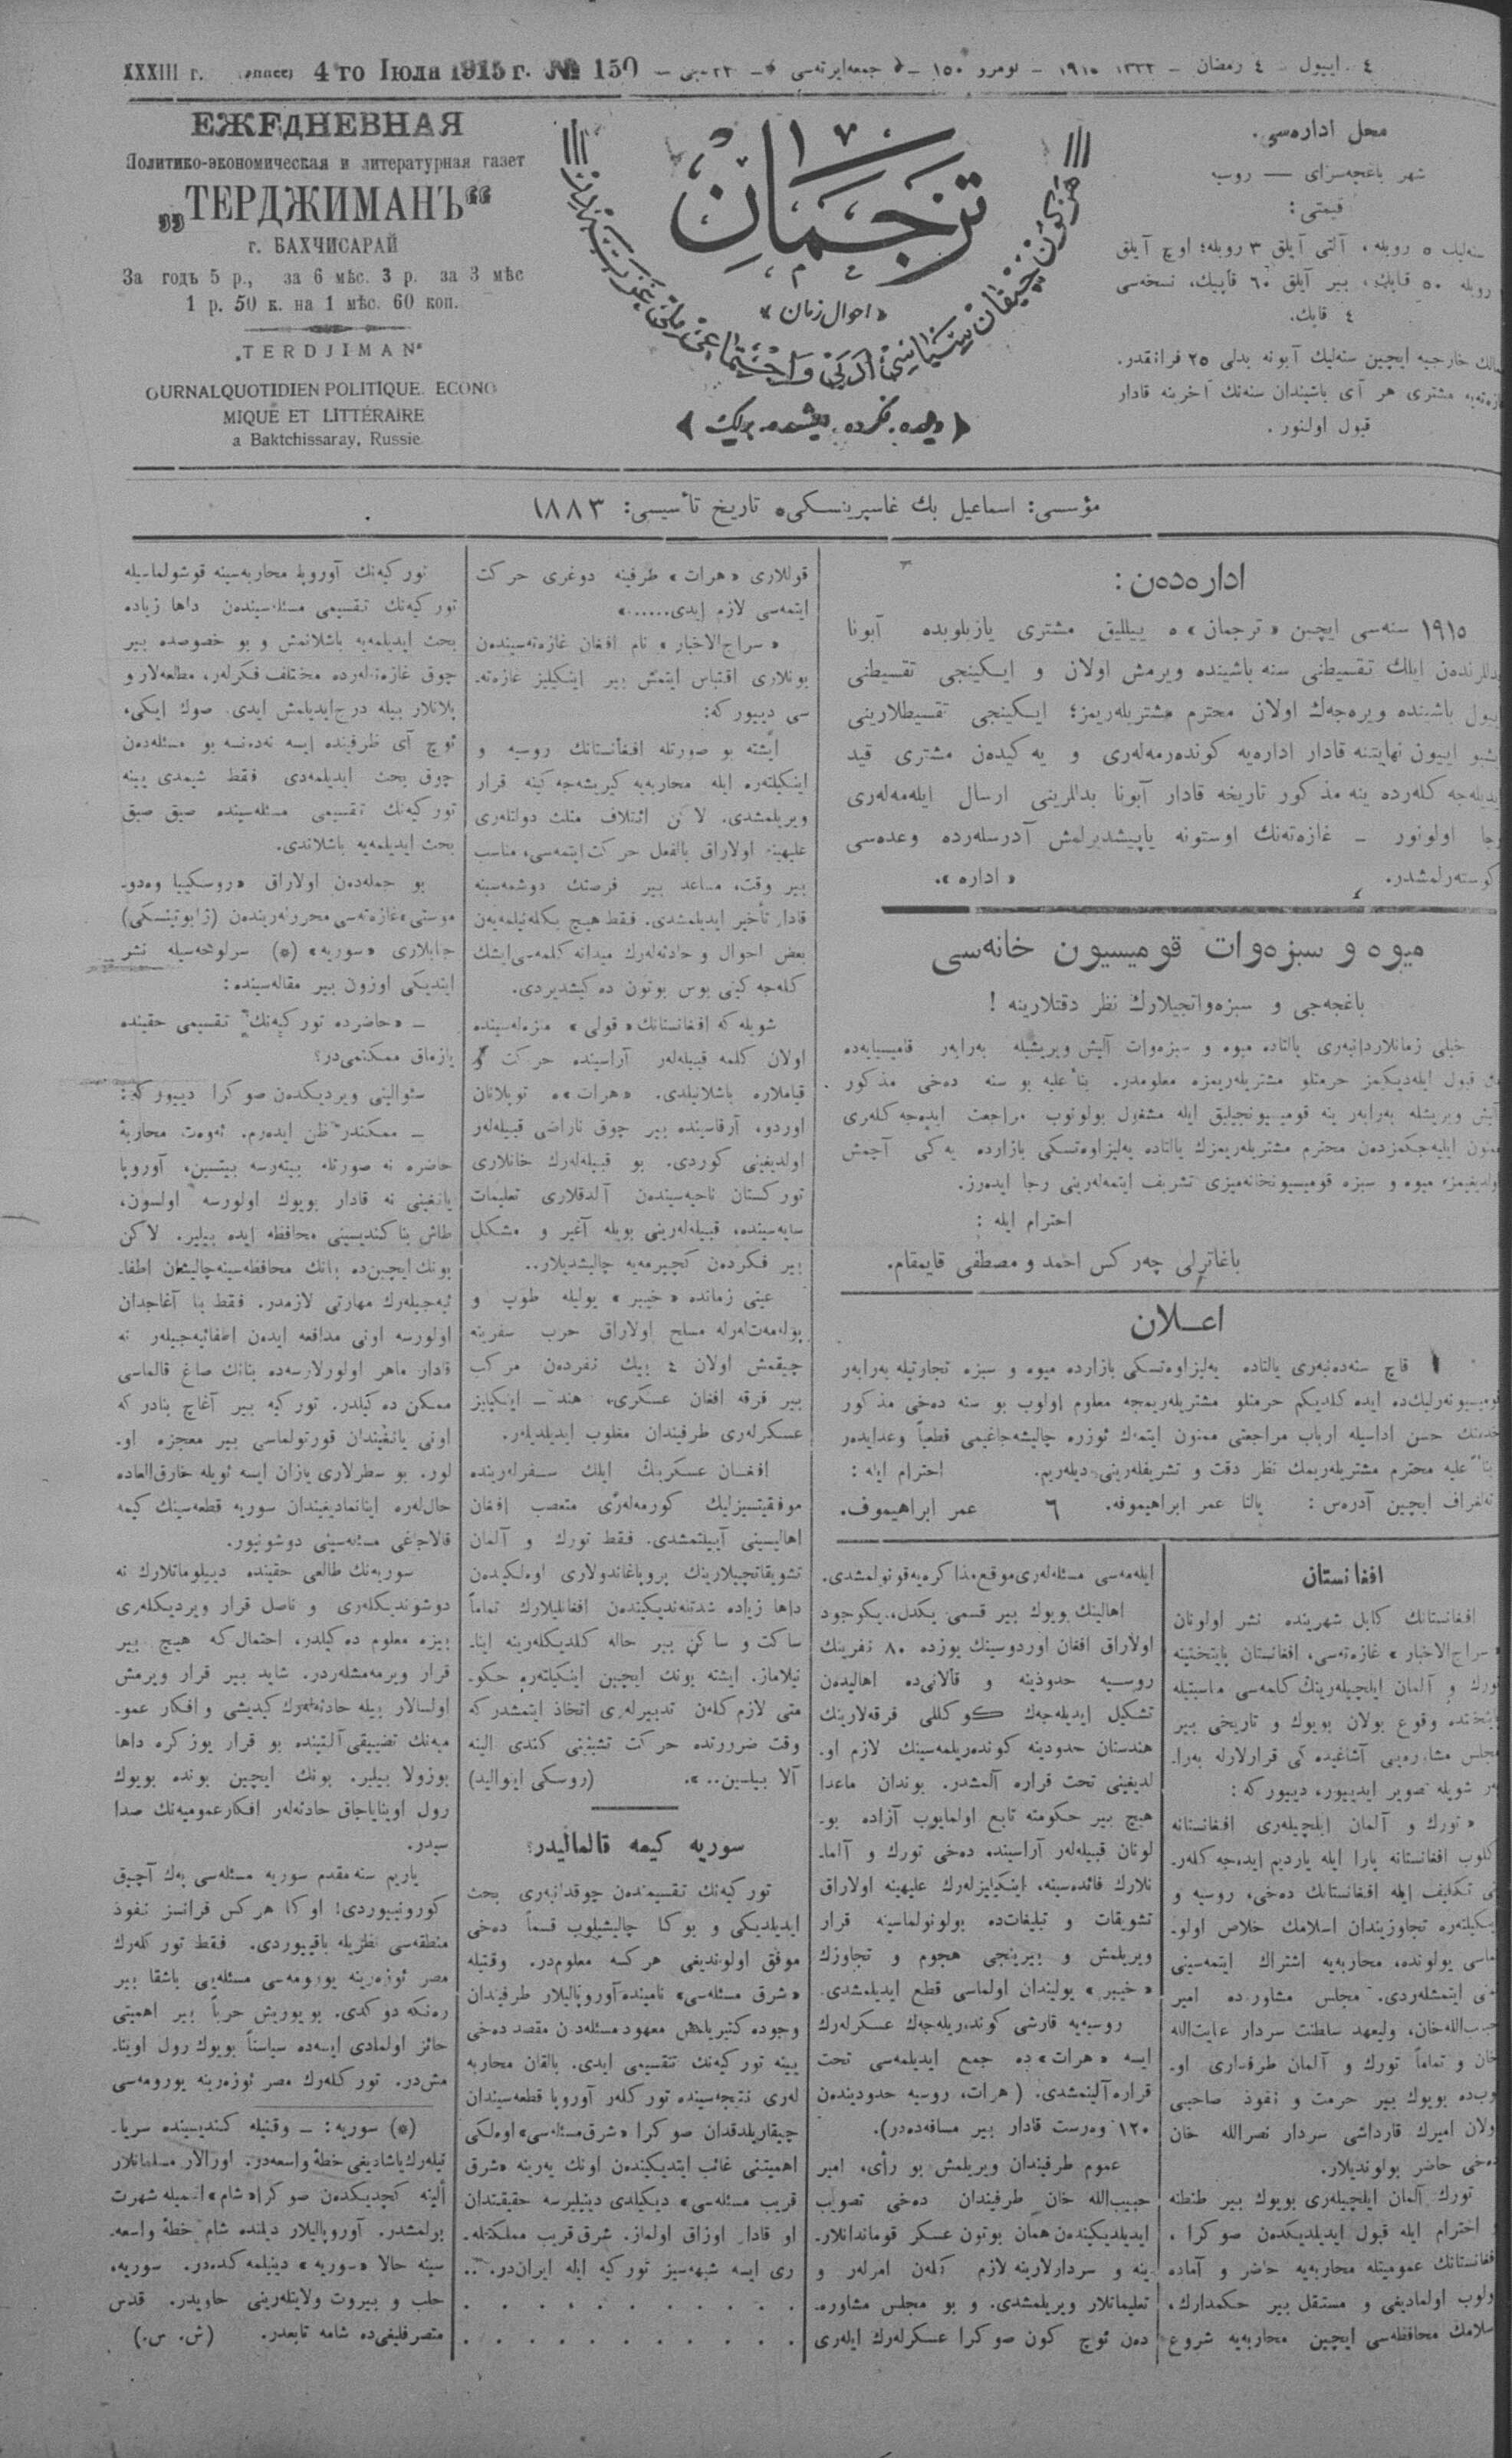 XXXIII г. 4 го Іюля 1915 г. № 150
٤ ایيول - ٤ رمضان - ١٣٣٣ ١٩١٥ - نومرو ١٥٠ - جمعه‌ایرته‌سی
ЕЖЕДНЕВНАЯ
Политико-экономическая и литературная газет
„ТЕРДЖИМАНЪ“
г. БАХЧИСАРАЙ
За годъ 5 р., за 6 мѣс. 3 р. за 3 мѣс
1 р. 50 к. на 1 мѣс. 60 коп.
„TERDJIMAN“
OURNAL QUOTIDIEN POLITIQUE. ECONO
MIQUE ET LITTÉRAIRE
a Baktchissaray, Russie
ترجمان
«احوال زمان»
﴿دیلده، فکرده، ایشده، برلك﴾
محل اداره‌سی.
شهر باغچه‌سرای — روسیه
قیمتی:
سنه‌لیك ٥ روبله، آلتی آیلق ٣ روبله؛ اوچ آیلق
روبله ٥٠ قاپك، بیر آیلق ٦٠ قاپیك، نسخه‌سی
٤ قاپك.
خارجیه ایچین سنه‌لیك آبونه بدلی ٢٥ فرانقدر.
مشتری هر آی باشیندان سنه‌نك آخرینه قادار
قبول اولنور.
مؤسسی: اسماعیل بك غاسپرینسکی، تاریخ تأسیسی: ١٨٨٣
اداره‌دن:
١٩١٥ سنه‌سی ایچین «ترجمان» ه ییللیق مشتری یازیلوبده آبونا
بدللرندن ایلك تقسیطنی سنه باشینده ویرمش اولان و ایکینجی تقسیطنی
باشنده ویره‌جك اولان محترم مشتریله‌ریمز؛ ایکینجی تقسیطلارینی
اییون نهایتنه قادار اداره‌یه کونده‌رمه‌له‌ری و یه‌کیدن مشتری قید
ایدیله‌جه‌کله‌رده ینه مذکور تاریخه قادار آبونا بدللرینی ارسال ایله‌مه‌له‌ری
رجا اولونور - غازه‌ته‌نك اوستونه یاپیشدیرلمش آدرسله‌رده وعده‌سی
کوسته‌رلمشدر. «اداره».
میوه و سبزه‌وات قومیسیون خانه‌سی
باغچه‌جی و سبزه‌واتجیلارك نظر دقتلارینه!
خیلی زمانلاردانبه‌ری یالتاده میوه و سبزه‌وات آلیش ویریشیله به‌رابه‌ر
قبول ایله‌دیکیمز حرمتلو مشتریله‌ریمزه معلومدر. بناءً علیه بو سنه ده‌خی مذکور
آلیش ویریشله به‌رابه‌ر ینه قومیسیونجیلیق ایله مشغول بولونوب مراجعت ایده‌جه‌کله‌ری
ممنون ایلیه‌جکمزدن محترم مشتریله‌ریمزك یالتاده یه‌لیزاوه‌تسکی بازارده یه‌کی آچمش
اولدیغیمز، میوه و سبزه قومیسیونخانه‌میزی تشریف ایتمه‌له‌رینی رجا ایده‌رز.
احترام ایله:
باغاترلی چه‌رکس احمد و مصطفی قایمقام.
اعلان
قاچ سنه‌دنبه‌ری یالتاده یه‌لیزاوه‌تسکی بازارده میوه و سبزه تجارتیله به‌رابه‌ر
قومیسیونه‌رلیك‌ده ایده کلدیکم حرمتلو مشتریله‌ریمجه معلوم اولوب بو سنه ده‌خی مذکور
خدمتك حسن اداسیله ارباب مراجعتی ممنون ایتمه‌ك ئوزره چالیشه‌جاغیمی قطعیاً وعدایده‌ر
بناءً علیه محترم مشتریله‌ریمك نظر دقت و تشریفله‌رینی دیله‌ریم. احترام ایله:
تلغراف ایچین آدره‌س: یالتا عمر ابراهیموفه. ٦ عمر ابراهیموف.
افغانستان
افغانستانك کابل شهرینده نشر اولونان
«سراج‌الاخبار» غازه‌ته‌سی، افغانستان پایتختینه
تورك و آلمان ایلچیله‌رینك کلمه‌سی مناسبتیله
پایتختده وقوع بولان بویوك و تاریخی بیر
مجلس مشاوره‌یی آشاغیده‌کی قرارلارله به‌را‌-
به‌ر شویله تصویر ایدییور، دییور که:
«تورك و آلمان ایلچیله‌ری افغانستانه
کلوب افغانستانه پارا ایله یاردیم ایده‌جه‌کله‌ر-
نی تکلیف ایله افغانستانك ده‌خی، روسیه و
اینکیلتره تجاوزیندان اسلامك خلاص اولو-
ماسی یولونده، محاربه‌یه اشتراك ایتمه‌سینی
ایتمشله‌ردی. مجلس مشاورده امیر
حبیب‌الله‌خان، ولیعهد سلطنت سردار عنایت‌الله
خان و تماماً تورك و آلمان طرفداری او-
لوب‌ده بویوك بیر حرمت و نفوذ صاحبی
اولان امیرك قارداشی سردار نصرالله خان
ده‌خی حاضر بولوندیلار.
تورك آلمان ایلچیله‌ری بویوك بیر طنطنه
و احترام ایله قبول ایدیلدیکدن صوکرا،
افغانستانك عمومیتله محاربه‌یه حاضر و آماده
اولوب اولمادیغی و مستقل بیر حکمدارك،
اسلامك محافظه‌سی ایچین محاربه‌یه شروع
ایله‌مه‌سی مسئله‌له‌ری موقع مذاکره‌یه قونولمشدی.
اهالینك بویوك بیر قسمی یکدل، یکوجود
اولاراق افغان اوردوسینك یوزده ٨٠ نفرینك
روسیه حدودینه و قالانی‌ده اهالیدن
تشکیل ایدیله‌جه‌ك کوکللی فرقه‌لارینك
هندستان حدودینه کونده‌ریلمه‌سینك لازم او-
لدیغینی تحت قراره آلمشدر. بوندان ماعدا
هیچ بیر حکومته تابع اولمایوب آزاده بو-
لونان قبیله‌له‌ر آراسینده ده‌خی تورك و آلما-
نلارك فائده‌سینه، اینکیلیزله‌رك علیهینه اولاراق
تشویقات و تبلیغات‌ده بولونولماسینه قرار
ویریلمش و بیرینجی هجوم و تجاوزك
«خیبر» یولیندان اولماسی قطع ایدیلمشدی.
روسیه‌یه قارشی کونده‌ریله‌جه‌ك عسکرله‌رك
ایسه «هرات» ده جمع ایدیلمه‌سی تحت
قراره آلینمشدی. (هرات، روسیه حدودیندن
١٢٠ وه‌رست قادار بیر مسافه‌ده‌در).
عموم طرفیندان ویریلمش بو رأی، امیر
حبیب‌الله خان طرفیندان ده‌خی تصویب
ایدیلدیکیندن همان بوتون عسکر قوماندانلار-
ینه و سردارلارینه لازم کلن امرله‌ر و
تعلیماتلار ویریلمشدی. و بو مجلس مشاوره-
دن ئوچ کون صوکرا عسکرله‌رك ایله‌ری
قوللاری «هرات» طرفینه دوغری حرکت
ایتمه‌سی لازم ایدی......»
«سراج‌الاخبار» نام افغان غازه‌ته‌سیندن
بونلاری اقتباس ایتمش بیر اینکیلیز غازه‌ته-
سی دییور که:
ایشته بو صورتله افغانستانك روسیه و
اینکیلتره ایله محاربه‌یه کیریشه‌جه‌کینه قرار
ویریلمشدی. لاکن ائتلاف مثلث دولتله‌ری
علیهینه اولاراق بالفعل حرکت ایتمه‌سی، مناسب
بیر وقت، مساعد بیر فرصتك دوشمه‌سینه
قادار تأخیر ایدیلمشدی. فقط هیچ بکله‌نیلمه‌یه‌ن
بعض احوال و حادثه‌له‌رك میدانه کلمه‌سی ایشك
کله‌جه‌کینی بوس بوتون ده‌کیشدیردی.
شویله که افغانستانك «قولی» منزله‌سینده
اولان کلمه قبیله‌له‌ر آراسینده حرکت و
قیاملاره باشلانیلدی. «هرات» ه توپلانان
اوردو، آرقاسینده بیر چوق ناراضی قبیله‌له‌ر
اولدیغینی کوردی. بو قبیله‌له‌رك خانلاری
تورکستان ناحیه‌سیندن آلدقلاری تعلیمات
سایه‌سینده، قبیله‌له‌رینی بویله آغیر و مشکل
بیر فکردن کچیرمه‌یه چالیشدیلار..
عینی زمانده «خیبر» یولیله طوپ و
پوله‌مه‌تله‌رله مسلح اولاراق حرب سفرینه
چیقمش اولان ٤ بیك نفردن مرکب
بیر فرقه افغان عسکری، هند - اینکیلیز
عسکرله‌ری طرفیندان مغلوب ایدیلدیله‌ر.
افغان عسکرینك ایلك سفرله‌رینده
موفقیتسیزلیك کورمه‌له‌ری متعصب افغان
اهالیسینی آییلتمشدی. فقط تورك و آلمان
تشویقاتچیلارینك پروپاغاندولاری اوه‌لکیدن
داها زیاده شدتله‌ندیکیندن افغانلیلارك تماماً
ساکت و ساکن بیر حاله کلدیکله‌رینه اینا-
نیلاماز. ایشته بونك ایچین اینکیلتره حکو-
متی لازم کلن تدبیرله‌ری اتخاذ ایتمشدر که
وقت ضرورتده حرکت تشبثینی کندی الینه
آلا بیلسین..». (روسکی اینوالید)
سوریه کیمه قالمالیدر؟
تورکیه‌نك تقسیمندن چوقدانبه‌ری بحث
ایدیلدیکی و بوکا چالیشیلوب قسماً ده‌خی
موفق اولوندیغی هرکسه معلوم‌در. وقتیله
«شرق مسئله‌سی» نامینده آوروپالیلار طرفیندان
وجوده کتیریلمش معهود مسئله‌دن مقصد ده‌خی
یینه تورکیه‌نك تقسیمی ایدی. بالقان محاربه
له‌ری نتیجه‌سینده تورکله‌ر آوروپا قطعه‌سیندان
چیقاریلدقدان صوکرا «شرق مسئله‌سی» اوه‌لکی
اهمیتنی غائب ایتدیکیندن اونك یه‌رینه «شرق
قریب مسئله‌سی» دیکیلدی دینیلیرسه حقیقتدان
او قادار اوزاق اولماز. شرق قریب مملکتله-
ری ایسه شبهه‌سیز تورکیه ایله ایران‌در. ..
. . . . . . . . . . .
. . . . . . . . . . .
تورکیه‌نك آوروپا محاربه‌سینه قوشولماسیله
تورکیه‌نك تقسیمی مسئله‌سیندن داها زیاده
بحث ایدیلمه‌یه باشلانمش و بو خصوصده بیر
چوق غازه‌ته‌له‌رده مختلف فکرله‌ر، مطالعه‌لار و
پلانلار بیله درج ایدیلمش ایدی. صوك ایکی،
ئوچ آی ظرفینده ایسه نه‌دنسه بو مسئله‌دن
چوق بحث ایدیلمه‌دی فقط شیمدی یینه
تورکیه‌نك تقسیمی مسئله‌سینده صیق صیق
بحث ایدیلمه‌یه باشلاندی.
بو جمله‌دن اولاراق «روسکییا وه‌دو-
موستی» غازه‌ته‌سی محررله‌ریندن (ژابوتینسکی)
جنابلاری «سوریه» (*) سرلوحه‌سیله نشر
ایتدیکی اوزون بیر مقاله‌سینده:
- «حاضرده تورکیه‌نك تقسیمی حقینده
یازماق ممکنمی‌در؟
سئوالینی ویردیکدن صوکرا دییور که:
- ممکندر ظن ایده‌رم. ئه‌وه‌ت محاربهٔ
حاضره نه صورتله بیته‌رسه بیتسین، آوروپا
یانغینی نه قادار بویوك اولورسه اولسون،
طاش بنا کندیسینی محافظه ایده بیلیر. لاکن
بونك ایچین‌ده بنانك محافظه‌سینه چالیشان اطفا-
ئیه‌جیله‌رك مهارتی لازمدر. فقط بنا آغاجدان
اولورسه اونی مدافعه ایدن اطفائیه‌جیله‌ر نه
قادار ماهر اولورلارسه‌ده بنانك صاغ قالماسی
ممکن ده‌کیلدر. تورکیه بیر آغاچ بنادر که
اونی یانغیندان قورتولماسی بیر معجزه او-
لور. بو سطرلاری یازان ایسه ئویله خارق‌العاده
حال‌له‌ره اینانمادیغیندان سوریه قطعه‌سینك کیمه
قالاجاغی مسئله‌سینی دوشونیور.
سوریه‌نك طالعی حقینده دیپلوماتلارك نه
دوشوندیکله‌ری و ناصل قرار ویردیکله‌ری
بیزه معلوم ده‌کیلدر، احتمال که هیچ بیر
قرار ویرمه‌مشله‌ردر. شاید بیر قرار ویرمش
اولسالار بیله حادثه‌له‌رك کیدیشی و افکار عمو-
میه‌نك تضییقی آلتینده بو قرار یوز کره داها
بوزولا بیلیر. بونك ایچین بونده بویوك
رول اوینایاجاق حادثه‌له‌ر افکار عمومیه‌نك صدا
سیدر.
یاریم سنه مقدم سوریه مسئله‌سی په‌ك آچیق
کورونییوردی! اوکا هرکس فرانسز نفوذ
منطقه‌سی نظریله باقییوردی. فقط تورکله‌رك
مصر ئوزه‌رینه یورومه‌سی مسئله‌یی باشقا بیر
ره‌نکه دوکدی. بو یوریش حرباً بیر اهمیتی
حائز اولمادی ایسه‌ده سیاستاً بویوك رول اوینا-
مش‌در. تورکله‌رك مصر ئوزه‌رینه یورومه‌سی
(*) سوریه: - وقتیله کندیسینده سریا-
نیله‌رك یاشادیغی خطهٔ واسعه‌در. اورالار مسلمانلار
ألینه کچدیکدن صوکرا «شام» اسمیله شهرت
بولمشدر. آوروپالیلار دیلنده شام خطهٔ واسعه-
سینه حالا «سوریه» دینیلمه‌کده‌در. سوریه،
حلب و بیروت ولایتله‌رینی حاویدر. قدس
متصرفلیغی‌ده شامه تابعدر. (ش. س.)